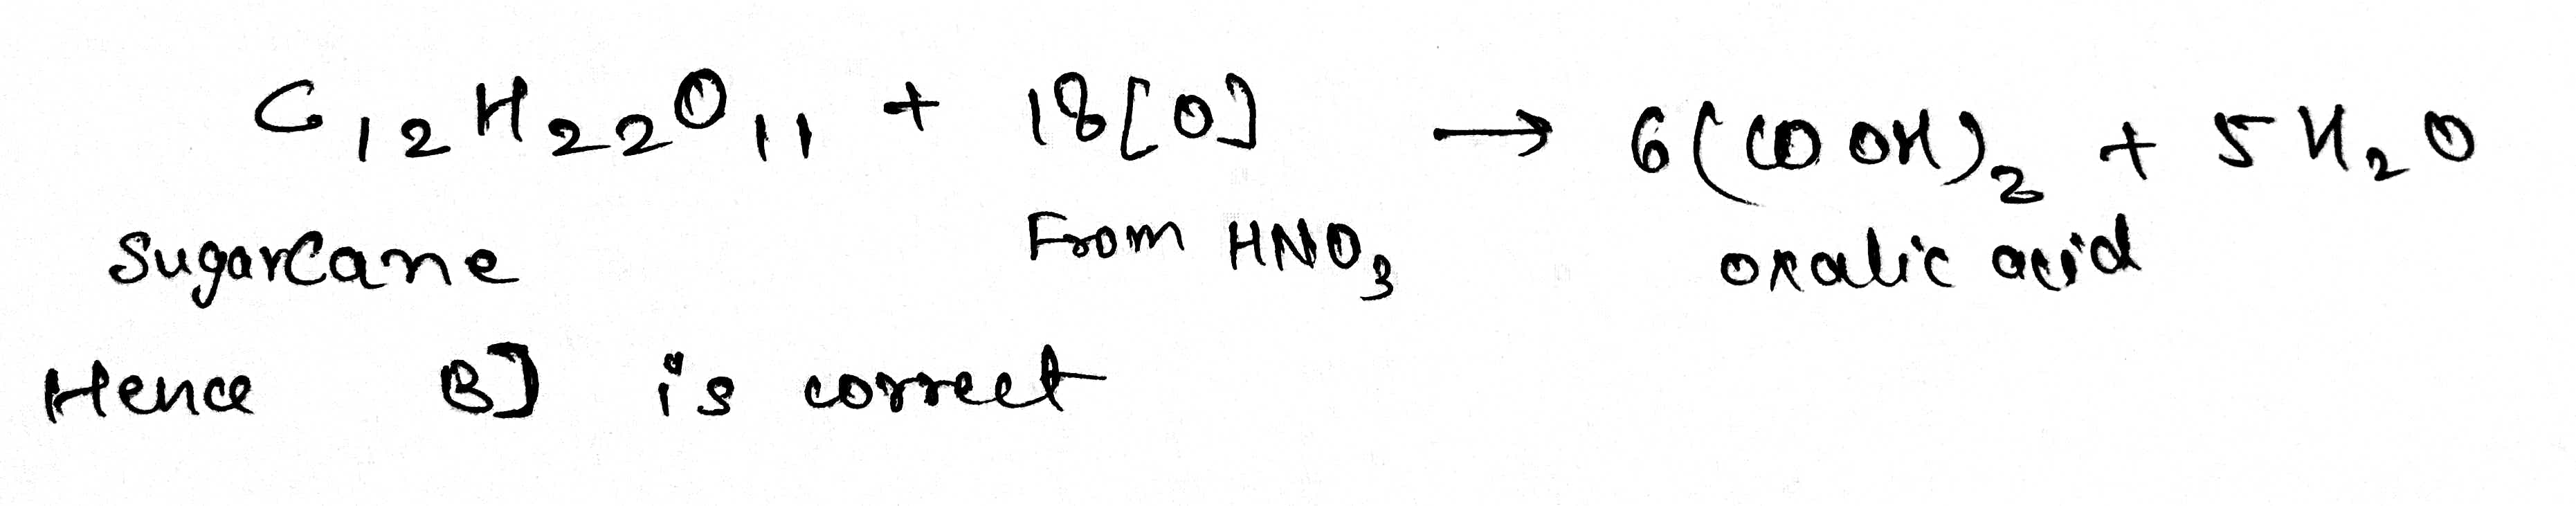 C₁₂H₂₂O₁₁ + 18[O] → 6(COOH)₂ + 5H₂O
Sugarcane From HNO₃ oxalic acid
Hence B] is correct